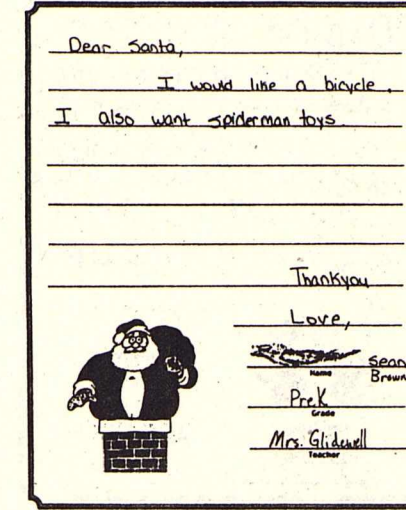 Dear Santa,
I would like a bicycle.
I also want spiderman toys.
Thankyou
Love,
Sean
Brown
Name
Pre.K
Grade
Mrs. Glidewell
Teacher